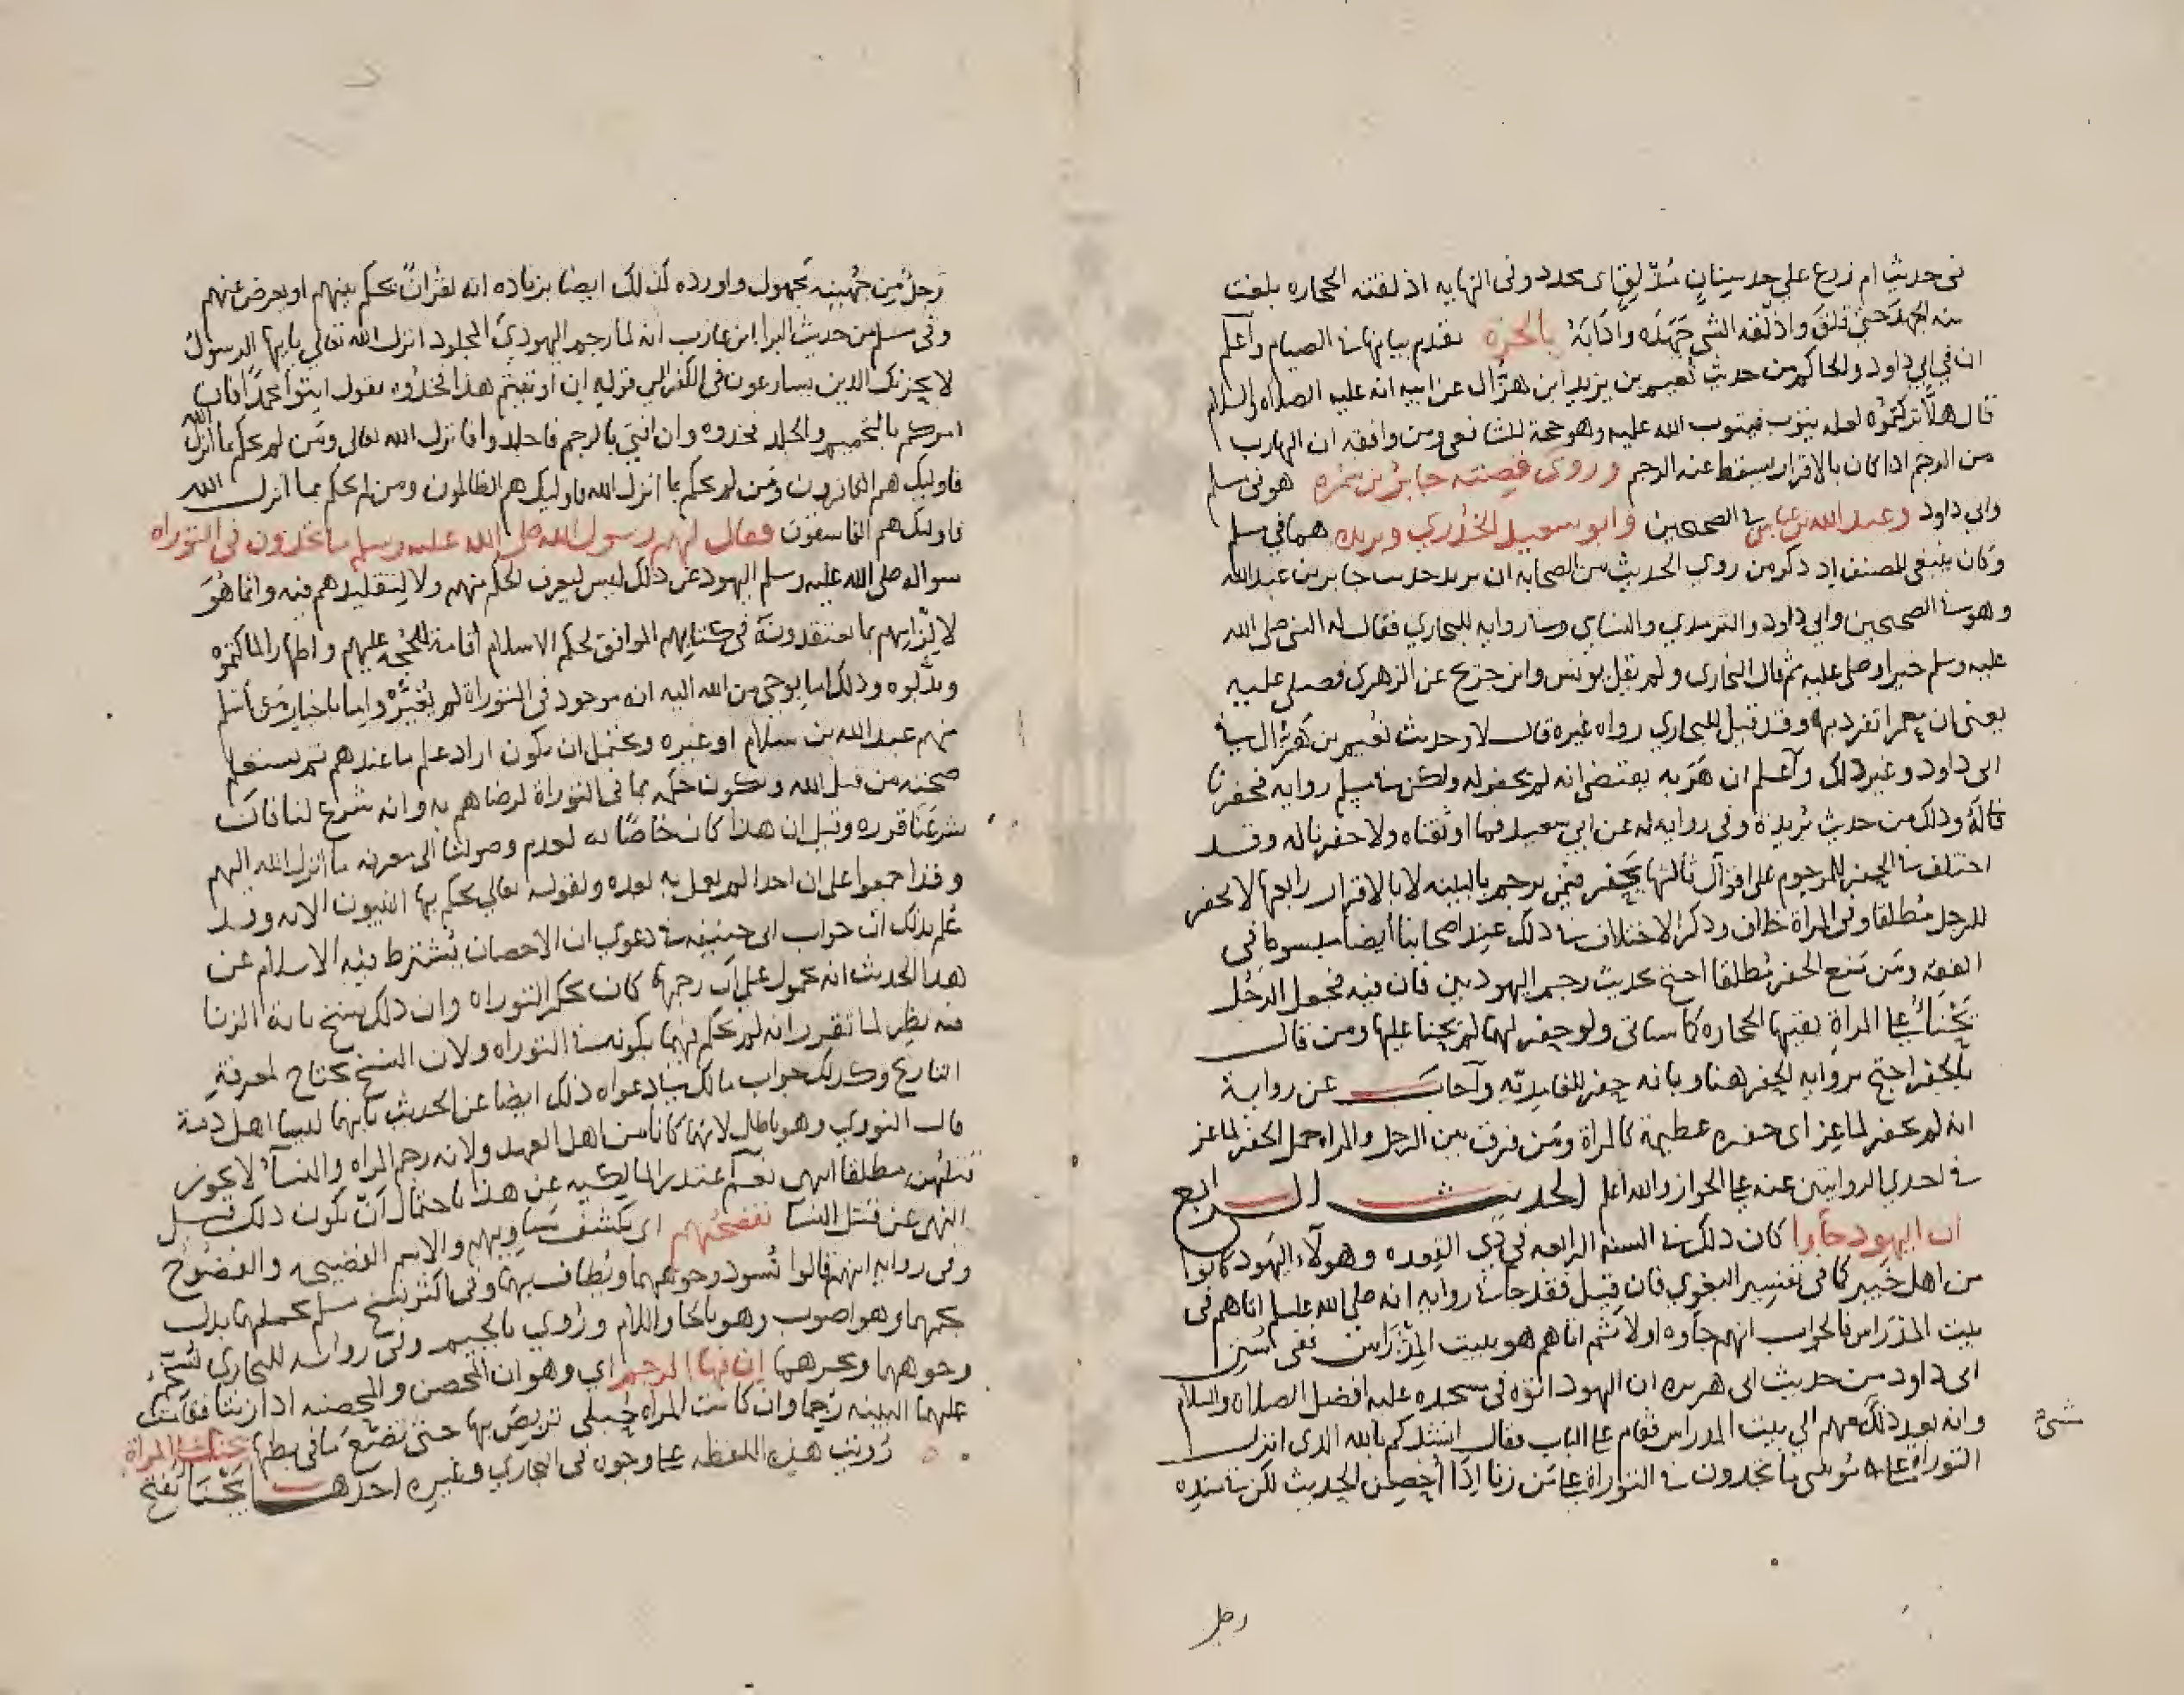 في حديث ام زرع على حد سنان مذلق اى محدد وفى النهايه اذلقته الحجاره بلغت
منه الجهد حتى قلق واذلقه الشى جهده واذابه بالحره تقدم بيانها في الصيام وأعلم
ان في ابي داود والحاكم من حديث نعيم بن يزيد ابن هزّال عن ابيه انه عليه الصلاه والسلام
قال هلّا تركتموه لعله يتوب فيتوب الله عليه وهو حجة للشافعى ومن وافقه ان الهارب
من الرجم اذا كان بالاقرار يسقط عنه الرجم وروى قصته جابر بن سمره هو فى مسلم
وابي داود وعبد الله بن عباس في الصحيحين وابو سعيد الخدري وبريده هما في مسلم
وكان ينبغى للمصنف اذ ذكر من روى الحديث من الصحابه ان يريد حديث جابر بن عبد الله
وهو في الصحيحين وابي داود والترمدي والنساي وفي روايه للبخاري فقال له النبى صلى الله
عليه وسلم خيرا وصلى عليه ثم قال البخارى ولم يقل يونس وابن جريج عن الزهرى فصلى عليه
يعنى ان معمرا تفرد بها وقد قيل للبخاري رواه غيره قال لا وحديث نعيم بن هزّال في
ابى داود وغير ذلك وأعلم ان هربه يقتضى انه لم يحفر له ولكن في مسلم روايه فحفرنا
له وذلك من حديث بريدة وفى روايه له عن ابي سعيد فما اوثقناه ولا حفرنا له وقد
اختلف في الحفر للمرجوم على اقوال ثالثها يحفر فيمن يرجم بالبينه لا بالاقرار رابعها لا يحفر
للرجل مطلقا وفى المراة خلاف وذكر الاختلاف في ذلك عند اصحابنا أيضا مبسوط فى
الفقه ومن منع الحفر مطلقا احتج بحديث رجم اليهوديين فان فيه فجعل الرجل
يجنأ على المراة يقيها الحجاره كما سياتى ولو حفر لهما لم يجنا عليها ومن قال
بالحفر احتج بروايه الحفر هنا وبانه حفر للغامديّه وأجاب عن رواية
انه لم يحفر لماعز اى حفره عظيمة كالمراة ومن فرق بين الرجل والمراه حمل الحفر لماعز
في احدى الروايتين عنه على الجواز والله اعلم الحديث الرابع
ان اليهود جاوا كان ذلك في السنه الرابعه في ذي القعده وهولاء اليهود كانوا
من اهل خيبر كما في تفسير البغوي فان قيل فقد جات روايه انه صلى الله عليه وسلم اتاهم فى
بيت المدراس فالجواب انهم جاوه اولا ثم اتاهم هو ببيت المدراس ففى سنن
ابى داود من حديث ابى هريره ان اليهود اتوه في مسجده عليه افضل الصلاه والسلام
وانه بعد ذلك معهم الي بيت المدراس فقام على الباب فقال انشدكم بالله الذى انزل
التوراة على موسى ما تجدون في التوراة على من زنا اذا أحصن الحديث لكن في سنده
شئ
رجل
رجل من جهينه مجهول واورده كذلك ايضا بزياده انه لقران يحكم بينهم او يعرض عنهم
وفى مسلم من حديث البرا ابن عازب انه لما رجم اليهوديّ المجلود انزل الله تعالي يايها الرسول
لا يحزنك الذين يسارعون في الكفر الي قوله ان اوتيتم هذا فخذوه يقول ايتوا محمدا فان
امركم بالتحميم والجلد فخدوه وان افتى بالرجم فاحذروا فانزل الله تعالى ومن لم يحكم بما انزل الله
فاوليك هم الكافرون ومن لم يحكم بما انزل الله فاوليك هم الظالمون ومن لم يحكم بما انزل الله
فاوليك هم الفاسقون فقال لهم رسول الله صلى الله عليه وسلم ما تجدون فى التوراه
سواله صلى الله عليه وسلم اليهود عن ذلك ليس ليعرف الحكم منهم ولا لتقليدهم فيه وانما هو
لالزامهم بما يعتقدونه في كتابهم الموافق لحكم الاسلام أقامة للحجه عليهم واظهارا لما كتموه
وبدّلوه وذلك اما بوحى من الله اليه انه موجود فى التوراة لم يغيّر واما باخبار من أسلم
منهم عبد الله بن سلام او غيره ويحتمل ان يكون اراد علم ما عندهم ثم يستعلم
صحته من قبل الله ويكون حكم بما في التوراة لرضاهم به وانه شرع لنا فان
شرعنا قرره وقيل ان هذا كان خاصّا به لعدم وصولنا الى معرفه ما انزل الله اليهم
وقد اجمعوا على ان احدا لم يعمل به بعده ولقوله تعالي يحكم بها النبيون الايه وقد
علم بذلك ان جواب ابى حنيفه في دعوي ان الاحصان يشترط فيه الاسلام عن
هذا الحديث انه محمول على ان رجمها كان بحكم التوراه وان ذلك نسخ باية الزنا
فيه نظر لما تقرر انه لم يحكم فيهما بكونه في التوراه ولان النسخ يحتاج لمعرفة
التاريخ وكذلك جواب مالك في دعواه ذلك ايضا عن الحديث بانهما ليسا اهل ذمة
قال النووي وهو باطل لانهما كانا من اهل العهد ولانه رجم المراه والنسآ لا يجوز
قتلهن مطلقا انتهى نعم اعتذر المالكيه عن هذا باحتمال أنّ يكون ذلك قبل
النهى عن قتل النسا نفضحهم اى نكشف مساويهم والاسم الفضيحه والفضوح
وفى روايه انهم قالوا نسود وجوههما ويطاف بهما وفى اكثر نسخ مسلم نحملهما بدل
نجمهما وهو اصوب وهو بالحا واللام وروي بالجيم وفى روايه للبخارى نسخم
وجوههما ونخزيهما ان فيها الرجم اي وهو ان المحصن والمحصنه اذا زنيا فقامت
عليهما البينه رجما وان كانت المراه حبلى تربص بها حتى تضع ما في بطنها يجنا على المراة
رويت هذه اللفظه على وجوه فى البخاري وغيره احدها يجنأ بفتح